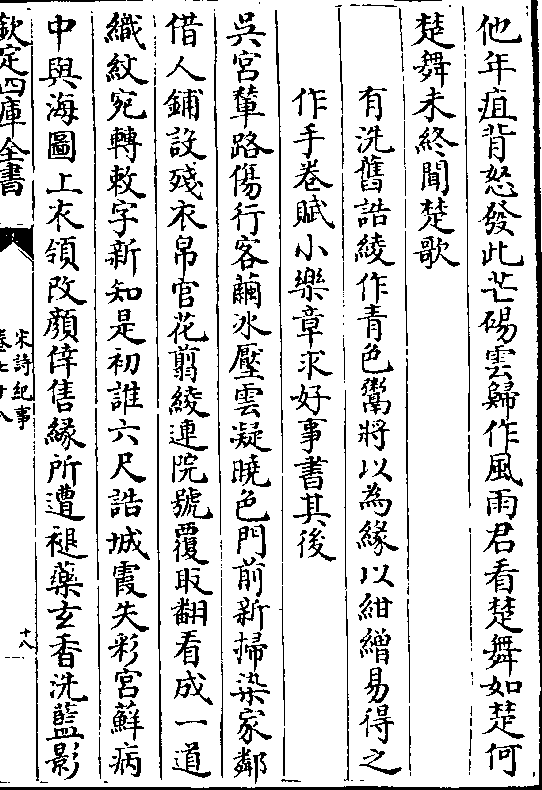 他年疽背怒發此芒碭雲歸作風雨君看楚舞如楚何
楚舞未終聞楚歌
有洗舊誥綾作青色鬻將以為緣以紺繒易得之
作手卷賦小樂章求好事書其後
吳宮輦路傷行客繭冰壓雲凝曉色門前新掃染家鄰
借人鋪設殘衣帛官花翦綾連院號覆取翻看成一道
織紋宛轉敕字新知是初誰六尺誥城霞失彩宮蘇病
中與海圖上衣領改顏倖售緣所遭褪藥玄香洗藍影
欽定四庫全書
宋詩紀事
卷七十八
十八